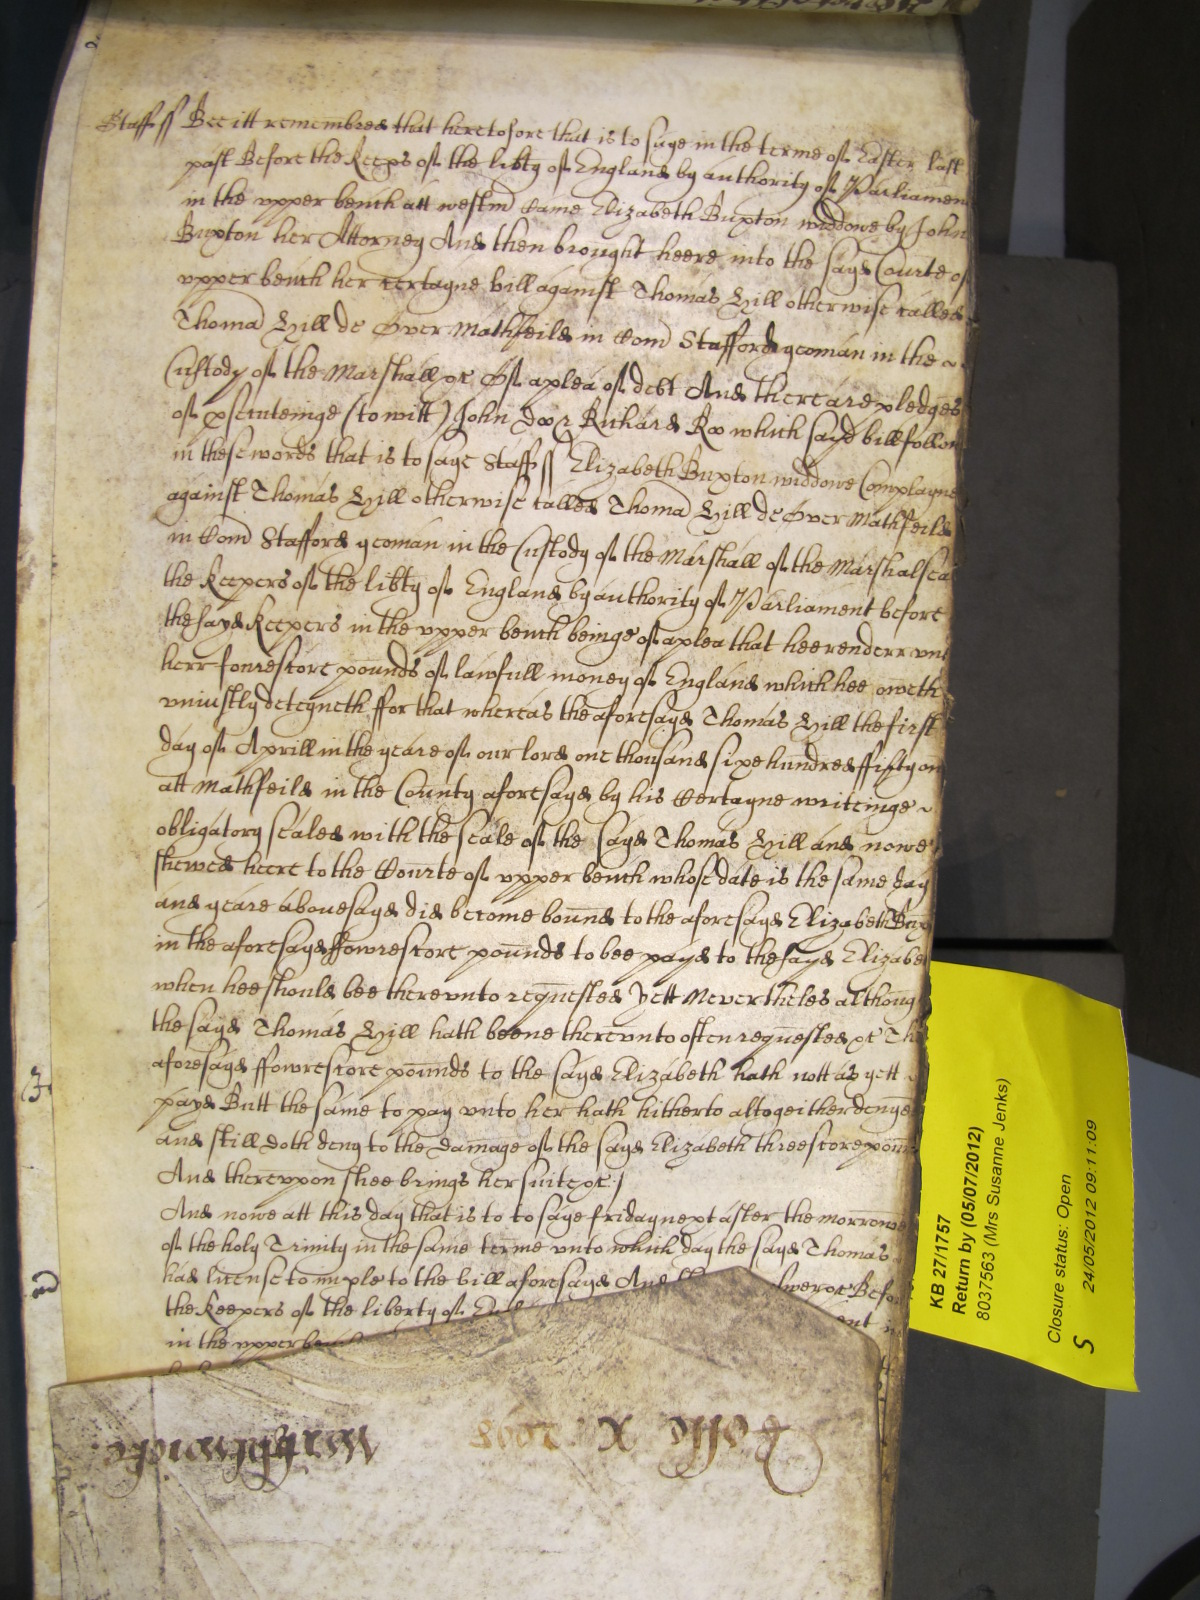 Staff ss Bee itt remembred that heretofore that is to saye in the terme of Easter last
past Before the Keeps of the libty of England by authority of Parliamen
in the vpper bench att westm Came Elizabeth Buxton widdowe by John
Buxton her Attorney And then brought heere into the sayd Courte of
vpper bench her certayne bill against Thomas Hill otherwise called
Thoma Hill de Over Mathfeild in Com Stafford yeoman in the
Custody of the Marshall &c Of a plea of debt And there are pledges
of psecuteinge (to witt) John Doo & Richard Roo which sayd bill follow
in these words that is to saye Staff ss Elizabeth Buxton widdowe Complayne
against Thomas Hill otherwise called Thoma Hill de Over Mathfeild
in Com Stafford yeoman in the Custody of the Marshall of the Marshalsea
the Keepers of the libty of England by authority of Parliament before
the sayd Keepers in the vpper bench beinge of a plea that hee renderr vnt
herr fourescore pounds of lawfull money of England which hee oweth
vniustly deteyneth ffor that whereas the aforesayd Thomas Hill the first
day of Aprill in the yeare of our lord one thousand sixe hundred ffifty on
att Mathfeild in the County aforesayd by his Certayne writeinge
obligatory sealed with the seale of the sayd Thomas Hill and nowe
shewed heere to the Courte of vpper bench whose date is the same day
and yeare abouesayd did become bound to the aforesayd Elizabeth Bux
in the aforesayd ffowrescore pounds to bee payd to the sayd Elizabe
when hee should bee therevnto requested Yett Neverthelés althoug
the sayd Thomas Hill hath beene therevnto often requested &c Th
aforesayd ffowrescore pounds to the sayd Elizabeth hath nott as yett
payd Butt the same to pay vnto her hath hitherto altogeither denyed
and still doth deny to the damage of the sayd Elizabeth threescore poun
And therevpon shee brings her suite &c
And nowe att this day that is to to saye friday next after the morrowe
of the holy Trinity in the same terme vnto which day the sayd Thomas
had license to imple to the bill aforesayd And swer &c Befor
the Keepers of the liberty of Engl ent
in the vpper bench
Rollo X 2098 Warthwicke
KB 27/1757
Return by (05/07/2012)
8037563 (Mrs Susanne Jenks)
Closure status: Open
S 24/05/2012 09:11:09